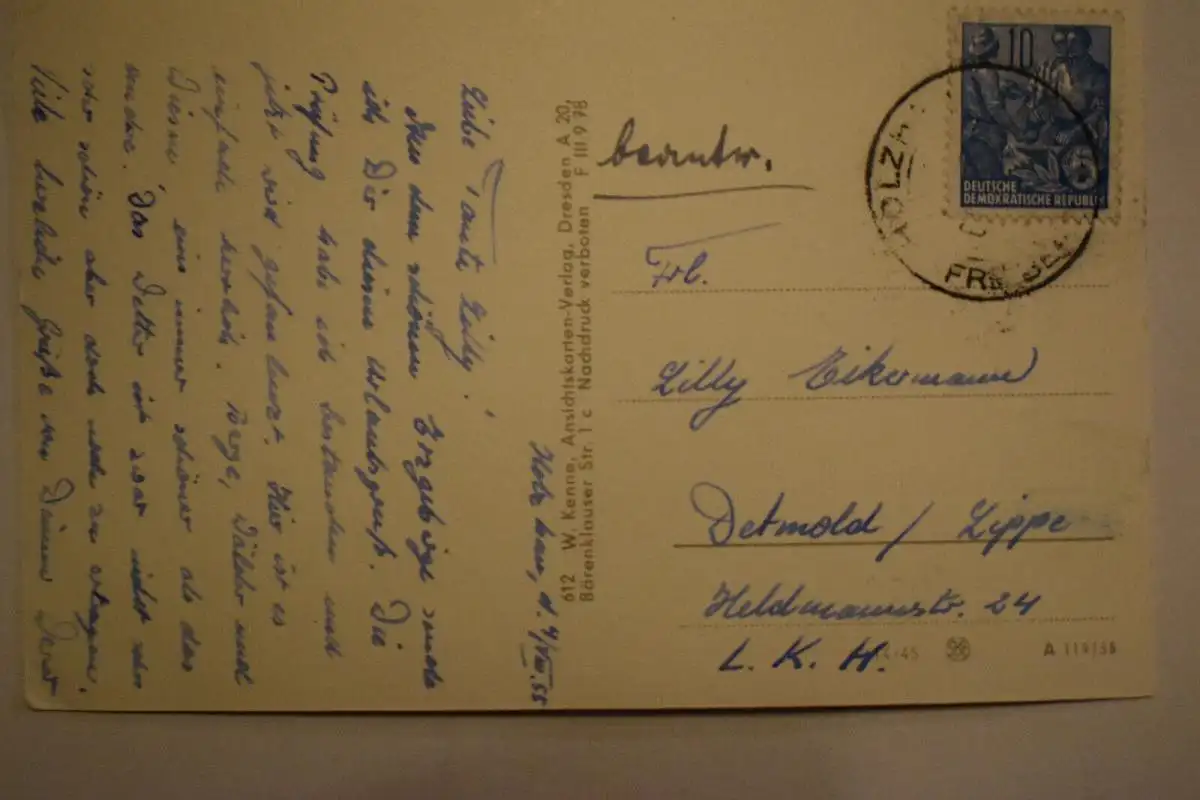 Holzhau, d. 4/VIII.55
Liebe Tante Lilly!
Aus dem schönen Erzgebirge sende
ich Dir diesen Urlaubsgruß. Die
Prüfung habe ich bestanden und
jetzt wird gefaulenzt. Hier ist es
einfach herrlich. Berge, Wälder und
Wiesen eins immer schöner als das
andere. Das Wetter ist zwar nicht sehr
sehr schön aber doch noch zu ertragen.
Viele herzliche Grüße von Deinem
612 W. Kenne, Ansichtskarten-Verlag, Dresden A 20,
Bärenklauser Str. 1 c Nachdruck verboten F III 9 78
beantw.
10
DEUTSCHE
DEMOKRATISCHE REPUBLIK
HOLZHA
Frl.
Lilly Eikermann
Detmold / Lippe
Heldmannstr. 24
L. K. H.
A 118/55